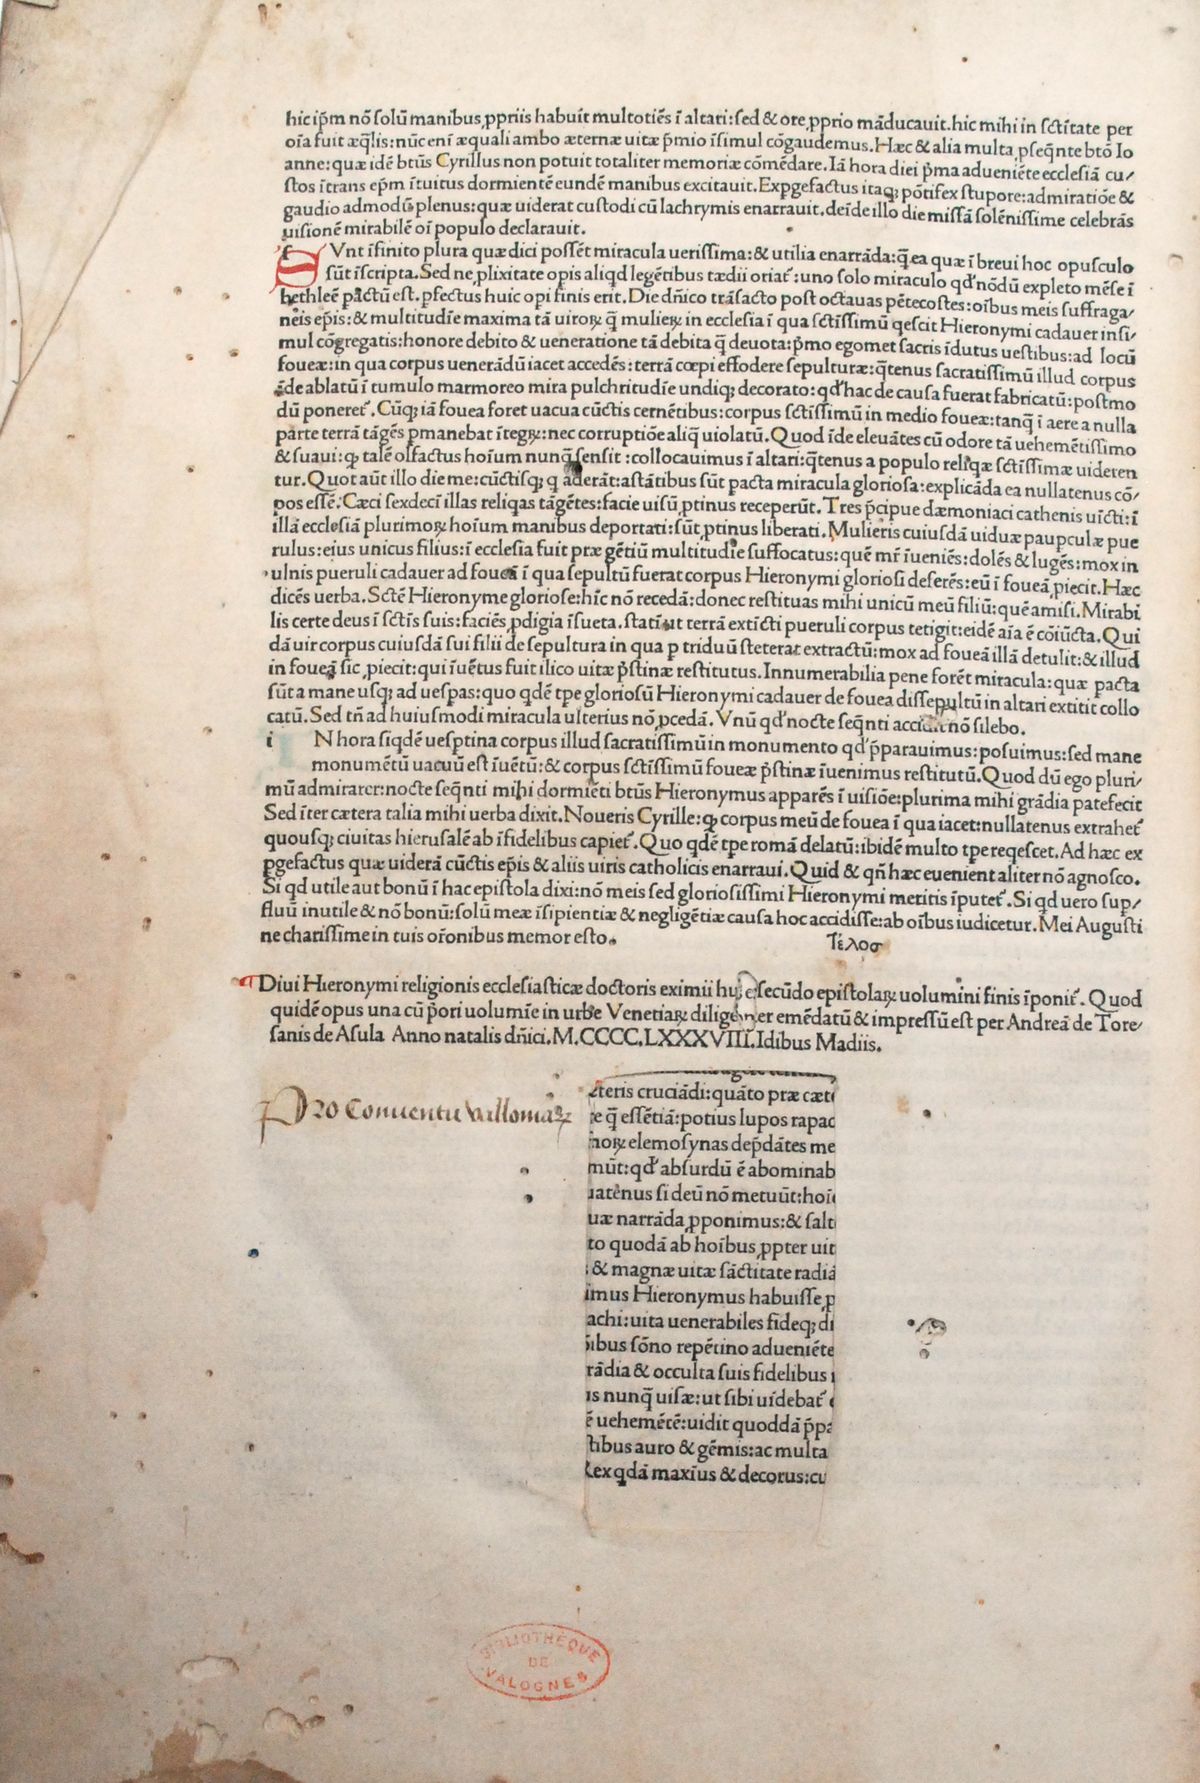 hic ip̄m nō ſolū manibus ꝓpriis habuit multotiēs ī altari:ſed & ore ꝓprio māducauit.hic mihi in ſctītate per
oīa fuit æq̄lis:nūc enī æquali ambo æternæ uitæ p̄mio īſimul cōgaudemus.Hæc & alia multa ꝓſeq̄nte btō Io
anne:quæ idē btūs Cyrillus non potuit totaliter memoriæ cōmēdare.Iā hora diei p̄ma adueniēte eccleſiā cu/
ſtos ītrans ep̄m ītuitus dormientē eundē manibus excitauit.Expgefactus itaq; pōtifex ſtupore:admiratiōe &
gaudio admodū plenus:quæ uiderat cuſtodi cū lachrymis enarrauit.deīde illo die miſſā ſolēniſſime celebrās
uiſionē mirabilē oī populo declarauit.
SVnt īfinito plura quæ dici poſſēt miracula ueriſſima:& utilia enarrāda:q̄ ea quæ ī breui hoc opuſculo
ſūt īſcripta.Sed ne ꝓlixitate opis aliqd legētibus tædii oriat᷑:uno ſolo miraculo qd' nōdū expleto mēſe ī
bethleē pactū eſt.pfectus huic opi finis erit.Die dn̄ico trāſacto poſt octauas pētecoſtes:oībus meis ſuffraga/
neis ep̄is:& multitudīe maxima tā uiroꝝ q̄ mulieꝝ in eccleſia ī qua ſctīſſimū qeſcit Hieronymi cadauer inſi/
mul cōgregatis:honore debito & ueneratione tā debita q̄ deuota:p̄mo egomet ſacris īdutus ueſtibus:ad locū
foueæ:in qua corpus uenerādū iacet accedēs:terrā cœpi effodere ſepulturæ:q̄tenus ſacratiſſimū illud corpus
īde ablatū ī tumulo marmoreo mira pulchritudīe undiq; decorato:qd' hac de cauſa fuerat fabricatū:poſtmo
dū poneret᷑.Cūq; iā fouea foret uacua cūctis cernētibus:corpus ſctīſſimū in medio foueæ:tanq̄ ī aere a nulla
parte terrā tāgēs pmanebat ītegꝝ:nec corruptiōe aliq̄ uiolatū.Quod īde eleuātes cū odore tā uehemētiſſimo
& ſuaui:ꝙ talē olfactus hoīum nunq̄ ſenſit:collocauimus ī altari:q̄tenus a populo reliq̄æ ſctīſſimæ uideren
tur.Quot aūt illo die me:cūctiſq; q aderāt:aſtātibus ſūt pacta miracula glorioſa:explicāda ea nullatenus cō/
pos eſſē.Cæci ſexdecī illas reliqas tāgētes:facie uiſū ꝓtinus receperūt.Tres p̄cipue dæmoniaci cathenis uīcti:ī
illā eccleſiā plurimoꝝ hoīum manibus deportati:ſūt ꝓtinus liberati.Mulieris cuiuſdā uiduæ paupculæ pue
rulus:eius unicus filius:ī eccleſia fuit præ gētiū multitudīe ſuffocatus:quē mr̄ īueniēs:dolēs & lugēs:mox in
ulnis pueruli cadauer ad foueā ī qua ſepultū fuerat corpus Hieronymi glorioſi deferēs:eū ī foueā ꝓiecit.Hæc
dicēs uerba.Sctē Hieronyme glorioſe:hīc nō recedā:donec reſtituas mihi unicū meū filiū:quē amiſi.Mirabi
lis certe deus ī ſctīs ſuis:faciēs ꝓdigia īſueta.ſtatī ut terrā extīcti pueruli corpus tetigit:eidē aīa ē cōiūcta.Qui
dā uir corpus cuiuſdā ſui filii de ſepultura in qua p triduū ſteterat extractū:mox ad foueā illā detulit:& illud
in foueā ſic ꝓiecit:qui īuētus fuit ilico uitæ p̄ſtinæ reſtitutus.Innumerabilia pene forēt miracula:quæ pacta
ſūt a mane uſq; ad ueſpas:quo qdē tpe glorioſū Hieronymi cadauer de fouea diſſepultū in altari extitit collo
catū.Sed tn̄ ad huiuſmodi miracula ulterius nō ꝓcedā.Vnū qd' nocte ſeq̄nti accidit nō ſilebo.
iN hora ſiqdē ueſptina corpus illud ſacratiſſimū in monumento qd' p̄parauimus:poſuimus:ſed mane
monumētū uacuū eſt īuētū:& corpus ſctīſſimū foueæ p̄ſtinæ īuenimus reſtitutū.Quod dū ego pluri/
mū admirarer:nocte ſeq̄nti mihi dormiēti btūs Hieronymus apparēs ī uiſiōe:plurima mihi grādia patefecit
Sed īter cætera talia mihi uerba dixit.Noueris Cyrille:ꝙ corpus meū de fouea ī qua iacet:nullatenus extrahet᷑
quouſq; ciuitas hieruſalē ab īfidelibus capiet᷑.Quo qdē tpe romā delatū:ibidē multo tpe reqeſcet.Ad hæc ex
pgefactus quæ uiderā cūctis ep̄is & aliis uiris catholicis enarraui.Quid & qn̄ hæc euenient aliter nō agnoſco.
Si qd utile aut bonū ī hac epiſtola dixi:nō meis ſed glorioſiſſimi Hieronymi meritis īputet᷑.Si qd uero ſup/
fluū inutile & nō bonū:ſolū meæ īſipientiæ & negligētiæ cauſa hoc accidiſſe:ab oībus iudicetur.Mei Auguſti
ne chariſſime in tuis or̄onibus memor eſto.
Τέλοσ
¶Diui Hieronymi religionis eccleſiaſticæ doctoris eximii hui; ſecūdo epiſtolaꝝ uolumini finis īponit᷑.Quod
quidē opus una cū p̄ori uolumīe in urbe Venetiaꝝ diligēter emēdatū & impreſſū eſt per Andreā de Tore/
ſanis de Aſula Anno natalis dn̄ici.M.CCCC.LXXXVIII.Idibus Madiis.
Pro Conuentu Valloniaꝝ
eteris cruciādi:quāto præ cæte
e q̄ eſſētiā:potius lupos rapac
noꝝ elemoſynas dep̄dātes me
mūt:qd' abſurdū ē abominab
uatenus ſi deū nō metuūt:hoī
uæ narrāda ꝓponimus:& ſalt
to quodā ab hoībus ꝓpter uit
s & magnæ uitæ ſāctitate radiā
imus Hieronymus habuiſſe ꝓ
achi:uita uenerabiles fideq; di
ībus ſōno repētino adueniēte
rādia & occulta ſuis fidelibus
is nunq̄ uiſæ:ut ſibi uidebat᷑
ē uehemētē:uidit quoddā p̄pa
ſtibus auro & gēmis:ac multa
Rex qdā maxīus & decorus:cu
BIBLIOTHÈQUE
DE
VALOGNES